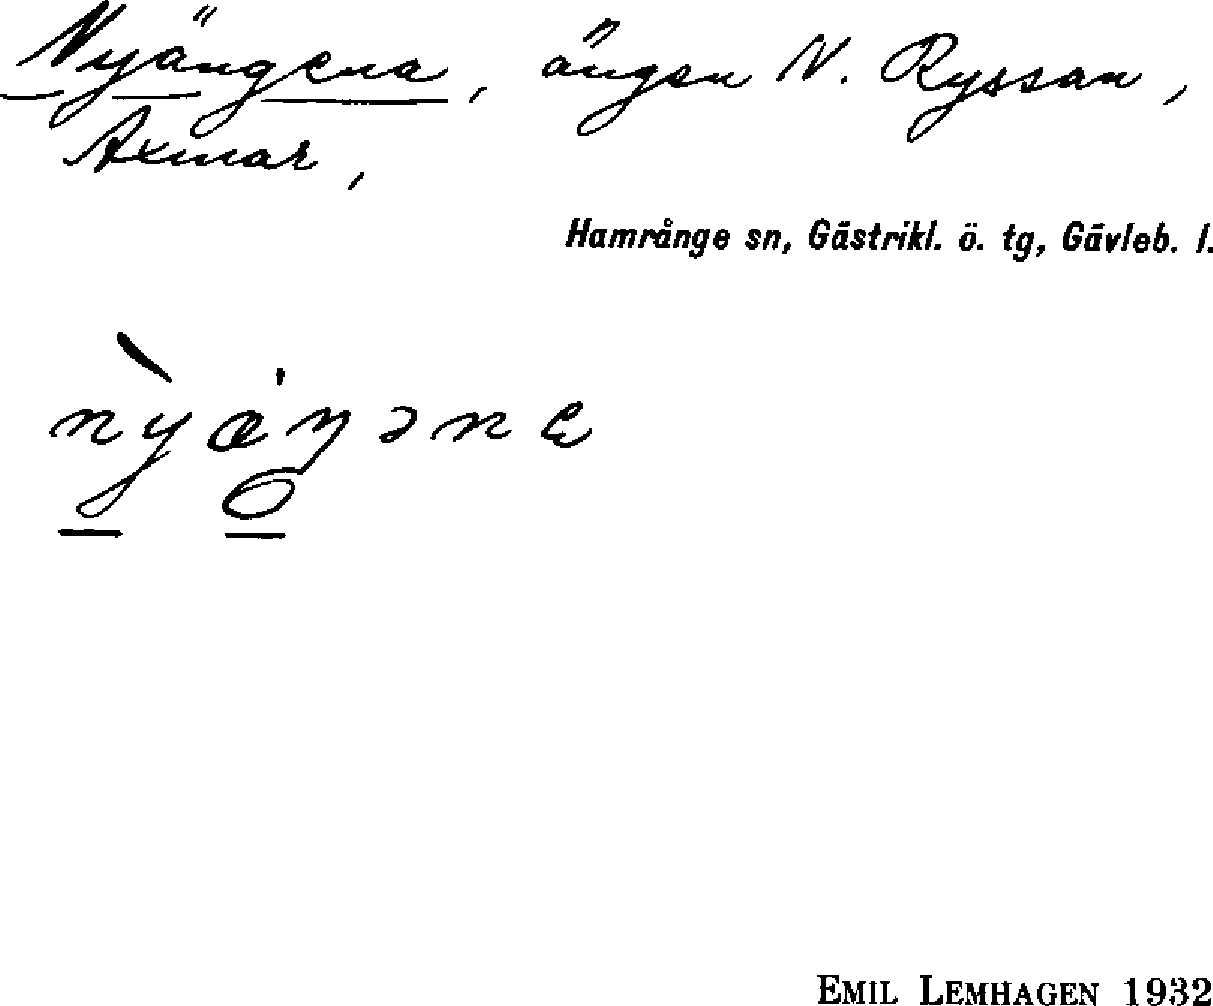 Nyängena, ängen N. Ryssan,
Axmar,
Hamrånge sn, Gästrikl. ö. tg, Gävleb. l.
EMIL LEMHAGEN 1932